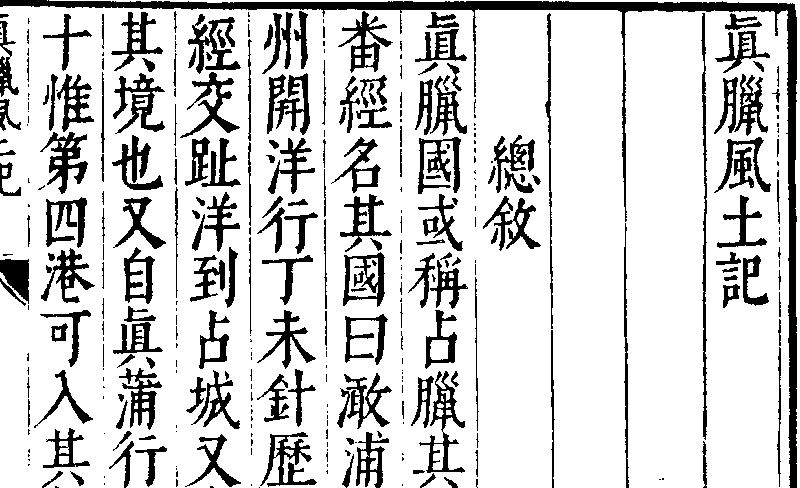 眞臘風土記
總敘
眞臘國或稱占臘其
番經名其國曰澉浦
州開洋行丁未針歷
經交趾洋到占城又
其境也又自眞蒲行
十惟第四港可入其
眞臘風土記